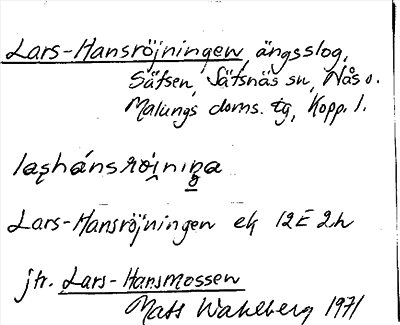 Lars-Hansröjningen, ängsslog,
Säfsen, Säfsnäs sn, Nås o.
Malungs doms. tg, Kopp. l.
lašhánsröi̯niŋa
Lars-Hansröjningen ek 12E 2h
jfr. Lars-Hansmossen
Mats Wahlberg 1971